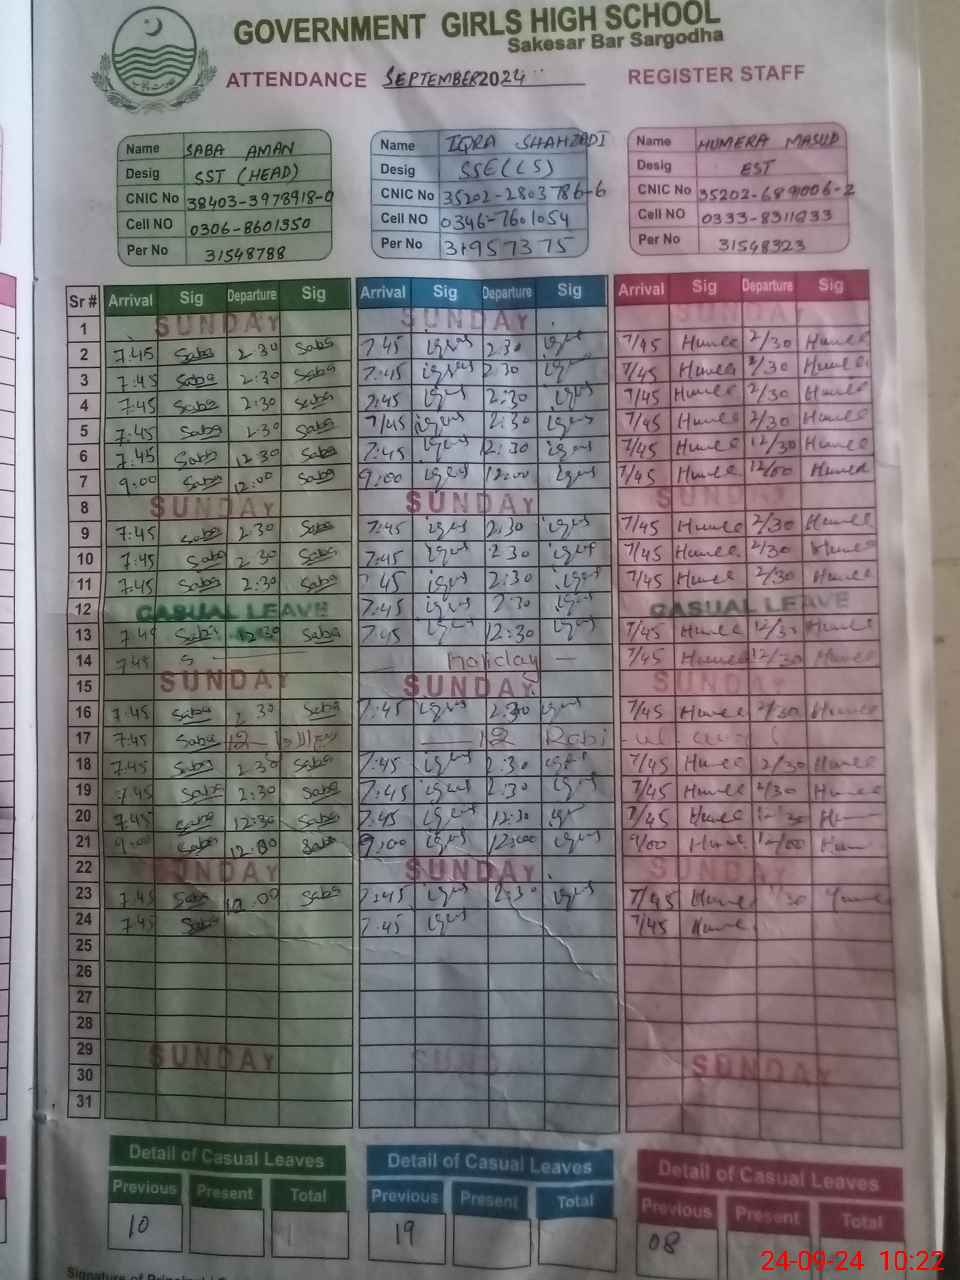 GOVERNMENT GIRLS HIGH SCHOOL
Sakesar Bar Sargodha
ATTENDANCE SEPTEMBER2024 REGISTER STAFF
Name SABA AMAN Name IQRA SHAHZADI Name HUMERA MASUD
Desig SST (HEAD) Desig SSE(LS) Desig EST
CNIC No 38403-3978918-0 CNIC No 35202-2803786-6 CNIC No
Cell NO 0306-8601350 Cell NO 0346-7601054 Cell NO
Per No 31548788 Per No 31957375 Per No 31548323
Sr # Arrival Sig Departure Sig Arrival Sig Departure Sig Arrival Sig Departure Sig
1 SUNDAY SUNDAY SUNDAY
2 7:45 Saba 2 30 Saba 7:45 iqra 2:30 iqra 7/45 Humee 2/30 Humee
3 7:45 Saba 2:30 Saba 7:45 iqra 2 30 7/45 Humee 2/30 Humee
4 7:45 Saba 2:30 Saba 7:45 iqra 2:30 iqra 7/45 Humee 2/30 Humee
5 7:45 Saba 2 30 Saba 7/45 iqra 2:30 iqra 7/45 Humee 2/30 Humee
6 7.45 Saba 12 30 Saba 7:45 iqra 12:30 iqra 7/45 Humee 12/30 Humee
7 9:00 Saba 12:00 Saba 9:00 iqra 12:00 iqra 7/45 Humee 12/00 Humee
8 SUNDAY SUNDAY SUNDAY
9 7:45 Saba 2:30 Saba 7:45 iqra 2:30 iqra 7/45 Humee 2/30 Humee
10 7:45 Saba 2 30 Saba 7:45 iqra 2 30 iqra 7/45 Humee 2/30 Humee
11 7:45 Saba 2:30 Saba 45 iqra 2:30 iqra 7/45 Humee 2/30 Humee
12 CASUAL LEAVE 7:45 iqra 2 30 iqra CASUAL LEAVE
13 Saba 12:30 Saba 7:45 iqra 12:30 iqra 7/45 Humee Humee
14 7:45 S Holiday 7/45 Humee 12/30 Humee
15 SUNDAY SUNDAY SUNDAY
16 7:45 Saba 2 30 Saba 7:45 iqra 2:30 iqra 7/45 Humee 2/30 Humee
17 7:45 Saba 12 12 Rabi
18 7:45 Saba 2:30 Saba 7:45 iqra 2:30 iqra 7/45 Humee 2/30 Humee
19 7:45 Saba 2:30 Saba 7:45 iqra 2:30 iqra 7/45 Humee 2/30 Humee
20 7:45 Saba 12:30 Saba 7:45 iqra 12:30 iqra 7/45 Humee 12 30
21 9:00 Saba 12:00 Saba 9:00 iqra 12:00 iqra 9/00 Humee 12/00
22 SUNDAY SUNDAY SUNDAY
23 7:45 Saba Saba 7:45 iqra 2:30 iqra 7/45 Humee
24 7:45 Saba 7:45 iqra 7/45 Humee
25
26
27
28
29 SUNDAY SUND SUNDAY
30
31
Detail of Casual Leaves Detail of Casual Leaves Detail of Casual Leaves
Previous Present Total Previous Present Total Previous Present Total
10 19 08
24-09-24 10:22